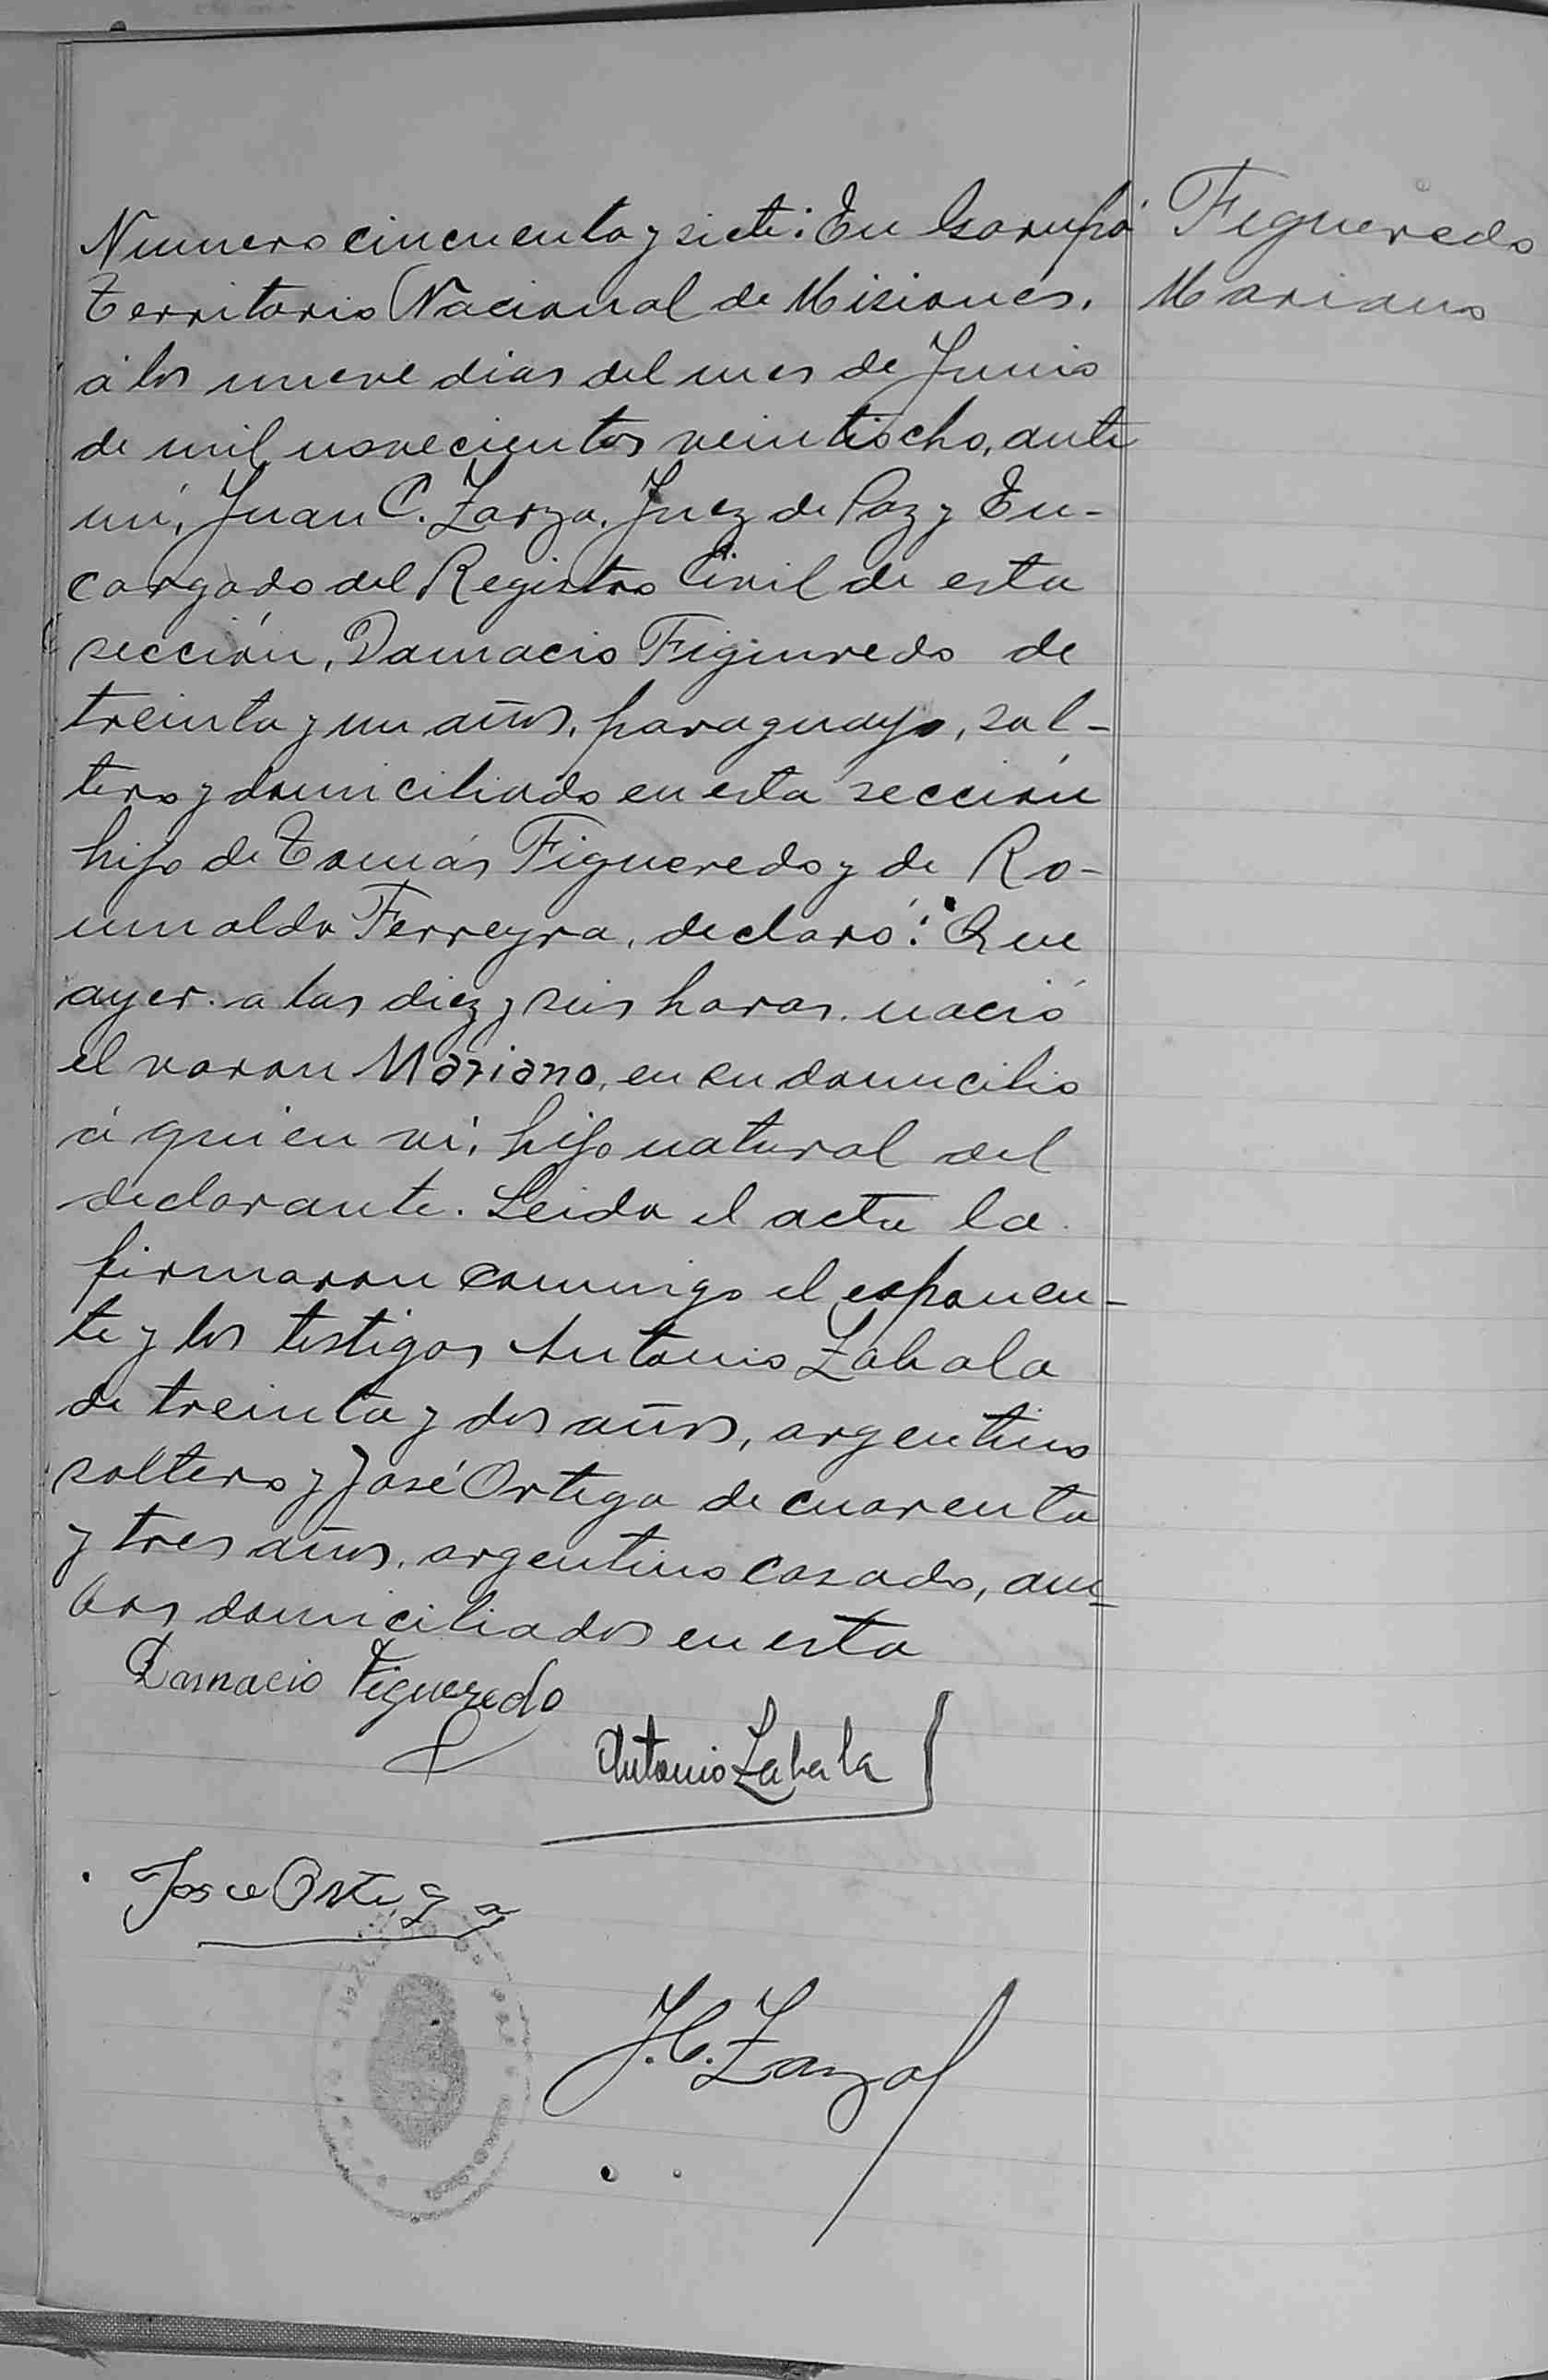 Numero cincuenta y siete: En Garupá
Territorio Nacional de Misiones,
á los nueve dias del mes de Junio
de mil novecientos veintiocho, ante
mí, Juan C. Zarza, Juez de Paz y En-
cargado del Registro Civil de esta
sección, Damacio Figueredo de
treinta y un años, paraguayo, sol-
tero y domiciliado en esta sección
hijo de Tomás Figueredo y de Ro-
mualda Ferreyra, declaró: Que
ayer a las diez y seis horas nació
el varon Mariano, en su domicilio
á quien ví, hijo natural del
declarante. Leida el acta la
firmaron conmigo el exponen-
te y los testigos Antonio Zabala
de treinta y dos años, argentino
soltero y José Ortega de cuarenta
y tres años, argentino casado, am-
bos domiciliados en esta
Damacio Figueredo
Antonio Zabala
Jose Ortega
J. C. Zarza
Figueredo
Mariano